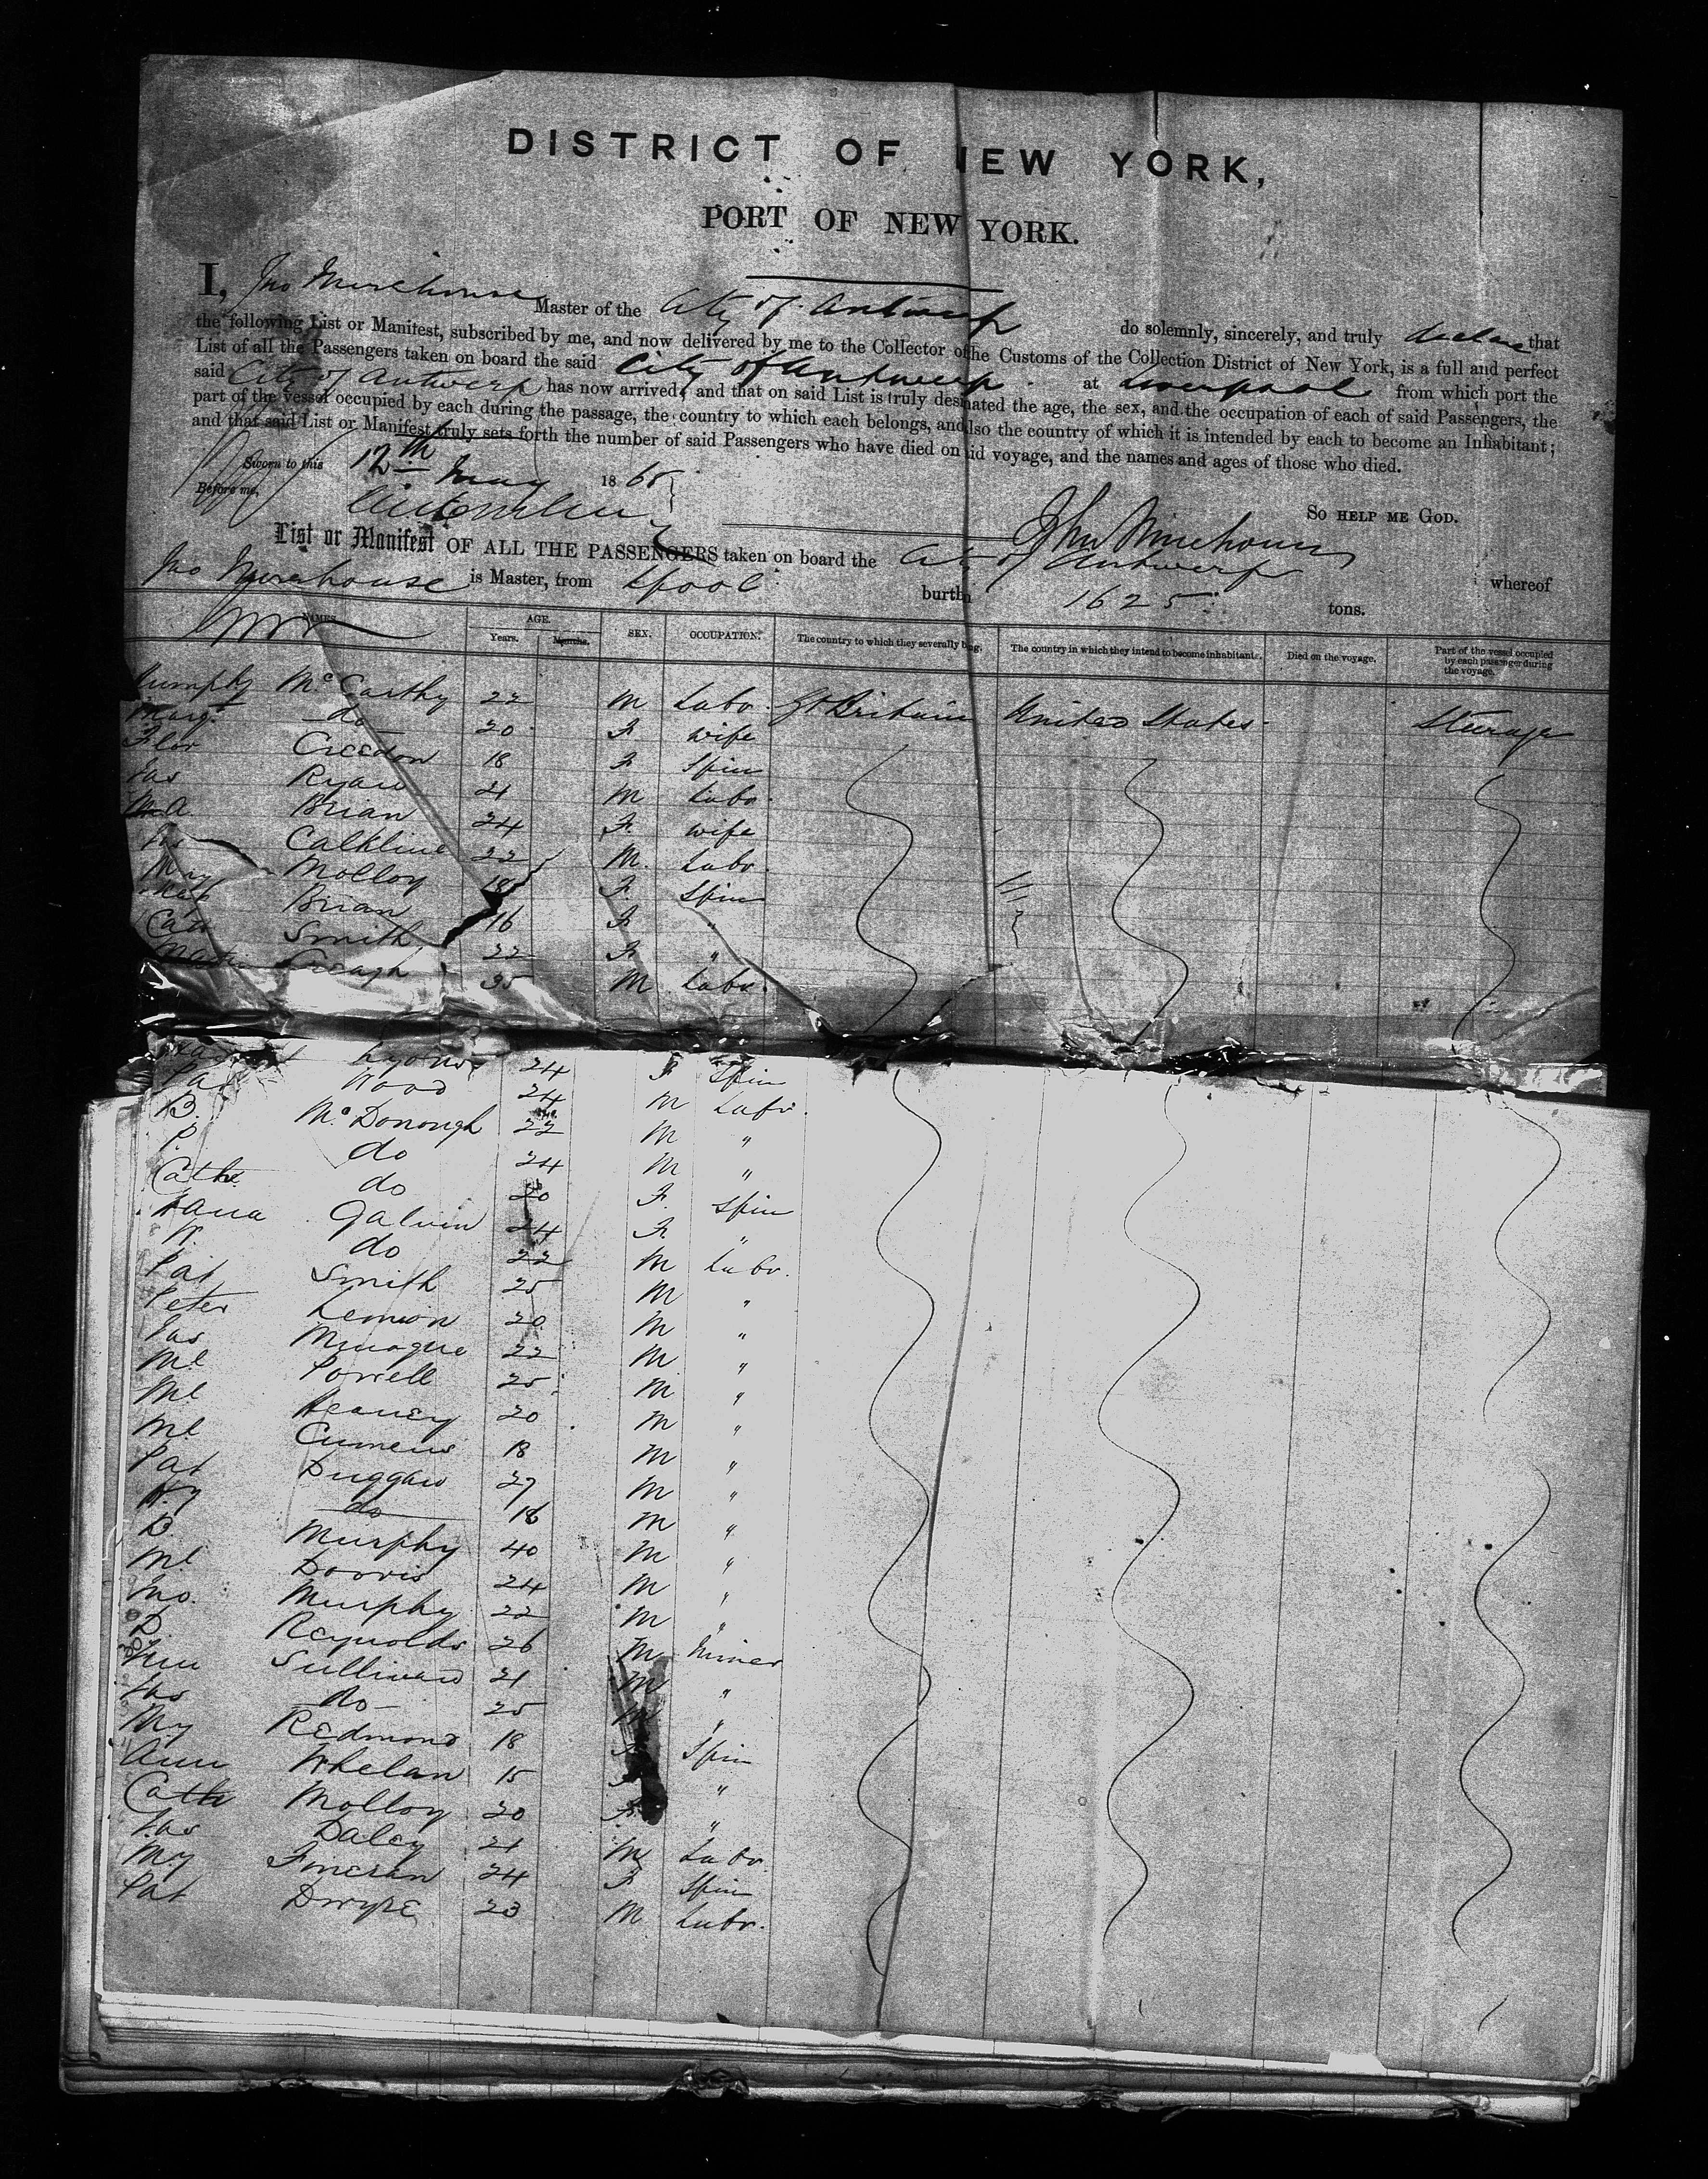 DISTRICT OF NEW YORK,
PORT OF NEW YORK.
I, Jno Mirehouse Master of the City of Antwerp do solemnly, sincerely, and truly declare that
the following List or Manifest, subscribed by me, and now delivered by me to the Collector of the Customs of the Collection District of New York, is a full and perfect
List of all the Passengers taken on board the said City of Antwerp at Liverpool from which port the
said City of Antwerp has now arrived; and that on said List is truly designated the age, the sex, and the occupation of each of said Passengers, the
part of the vessel occupied by each during the passage, the country to which each belongs, and also the country of which it is intended by each to become an Inhabitant;
and that said List or Manifest truly sets forth the number of said Passengers who have died on said voyage, and the names and ages of those who died.
Sworn to this 12th May 1868
Before me,
SO HELP ME GOD.
John Mirehouse
List or Manifest OF ALL THE PASSENGERS taken on board the City of Antwerp whereof
Jno Mirehouse is Master, from Lpool burthen 1625 tons.
NAMES. AGE. Years. Months. SEX. OCCUPATION. The country to which they severally belong. The country in which they intend to become inhabitants. Died on the voyage. Part of the vessel occupied by each passenger during the voyage.
McCarthy 22 M Labr. Gt Britain United States Steerage
Margt do 20 F wife
Flor Creedon 18 F Spin
Jas Ryan 21 M Labr.
Brian 24 F. wife
Calkline 22 M. Labr.
Mary Molloy 18 F. Spin
Brian 16 F "
Cath Smith 22 F "
Creagh 35 M Labr.
Lyons 24 F Spin
Pat Wood 24 M Labr.
B. McDonough 22 M "
P. do 24 M "
Cathe do 20 F. Spin
Galvin 24 F "
do 22 M Labr.
Pat Smith 25 M "
Peter Lennon 20 M "
Jas 22 M "
Ml Powell 25 M "
Ml Heaney 20 M "
Ml 18 M "
Pat Duggan 27 M "
Hy do 18 M "
B. Murphy 40 M "
Ml Dorris 24 M "
Jno. Murphy 22 M "
D. Reynolds 26 M Miner
Sullivan 21 M "
Jas do 25 M "
My Redmond 18 F Spin
Ann Whelan 15 F "
Cath Molloy 20 F "
Jas Daley 21 M Labr.
My Fineran 24 F Spin
Pat Dwyre 23 M Labr.